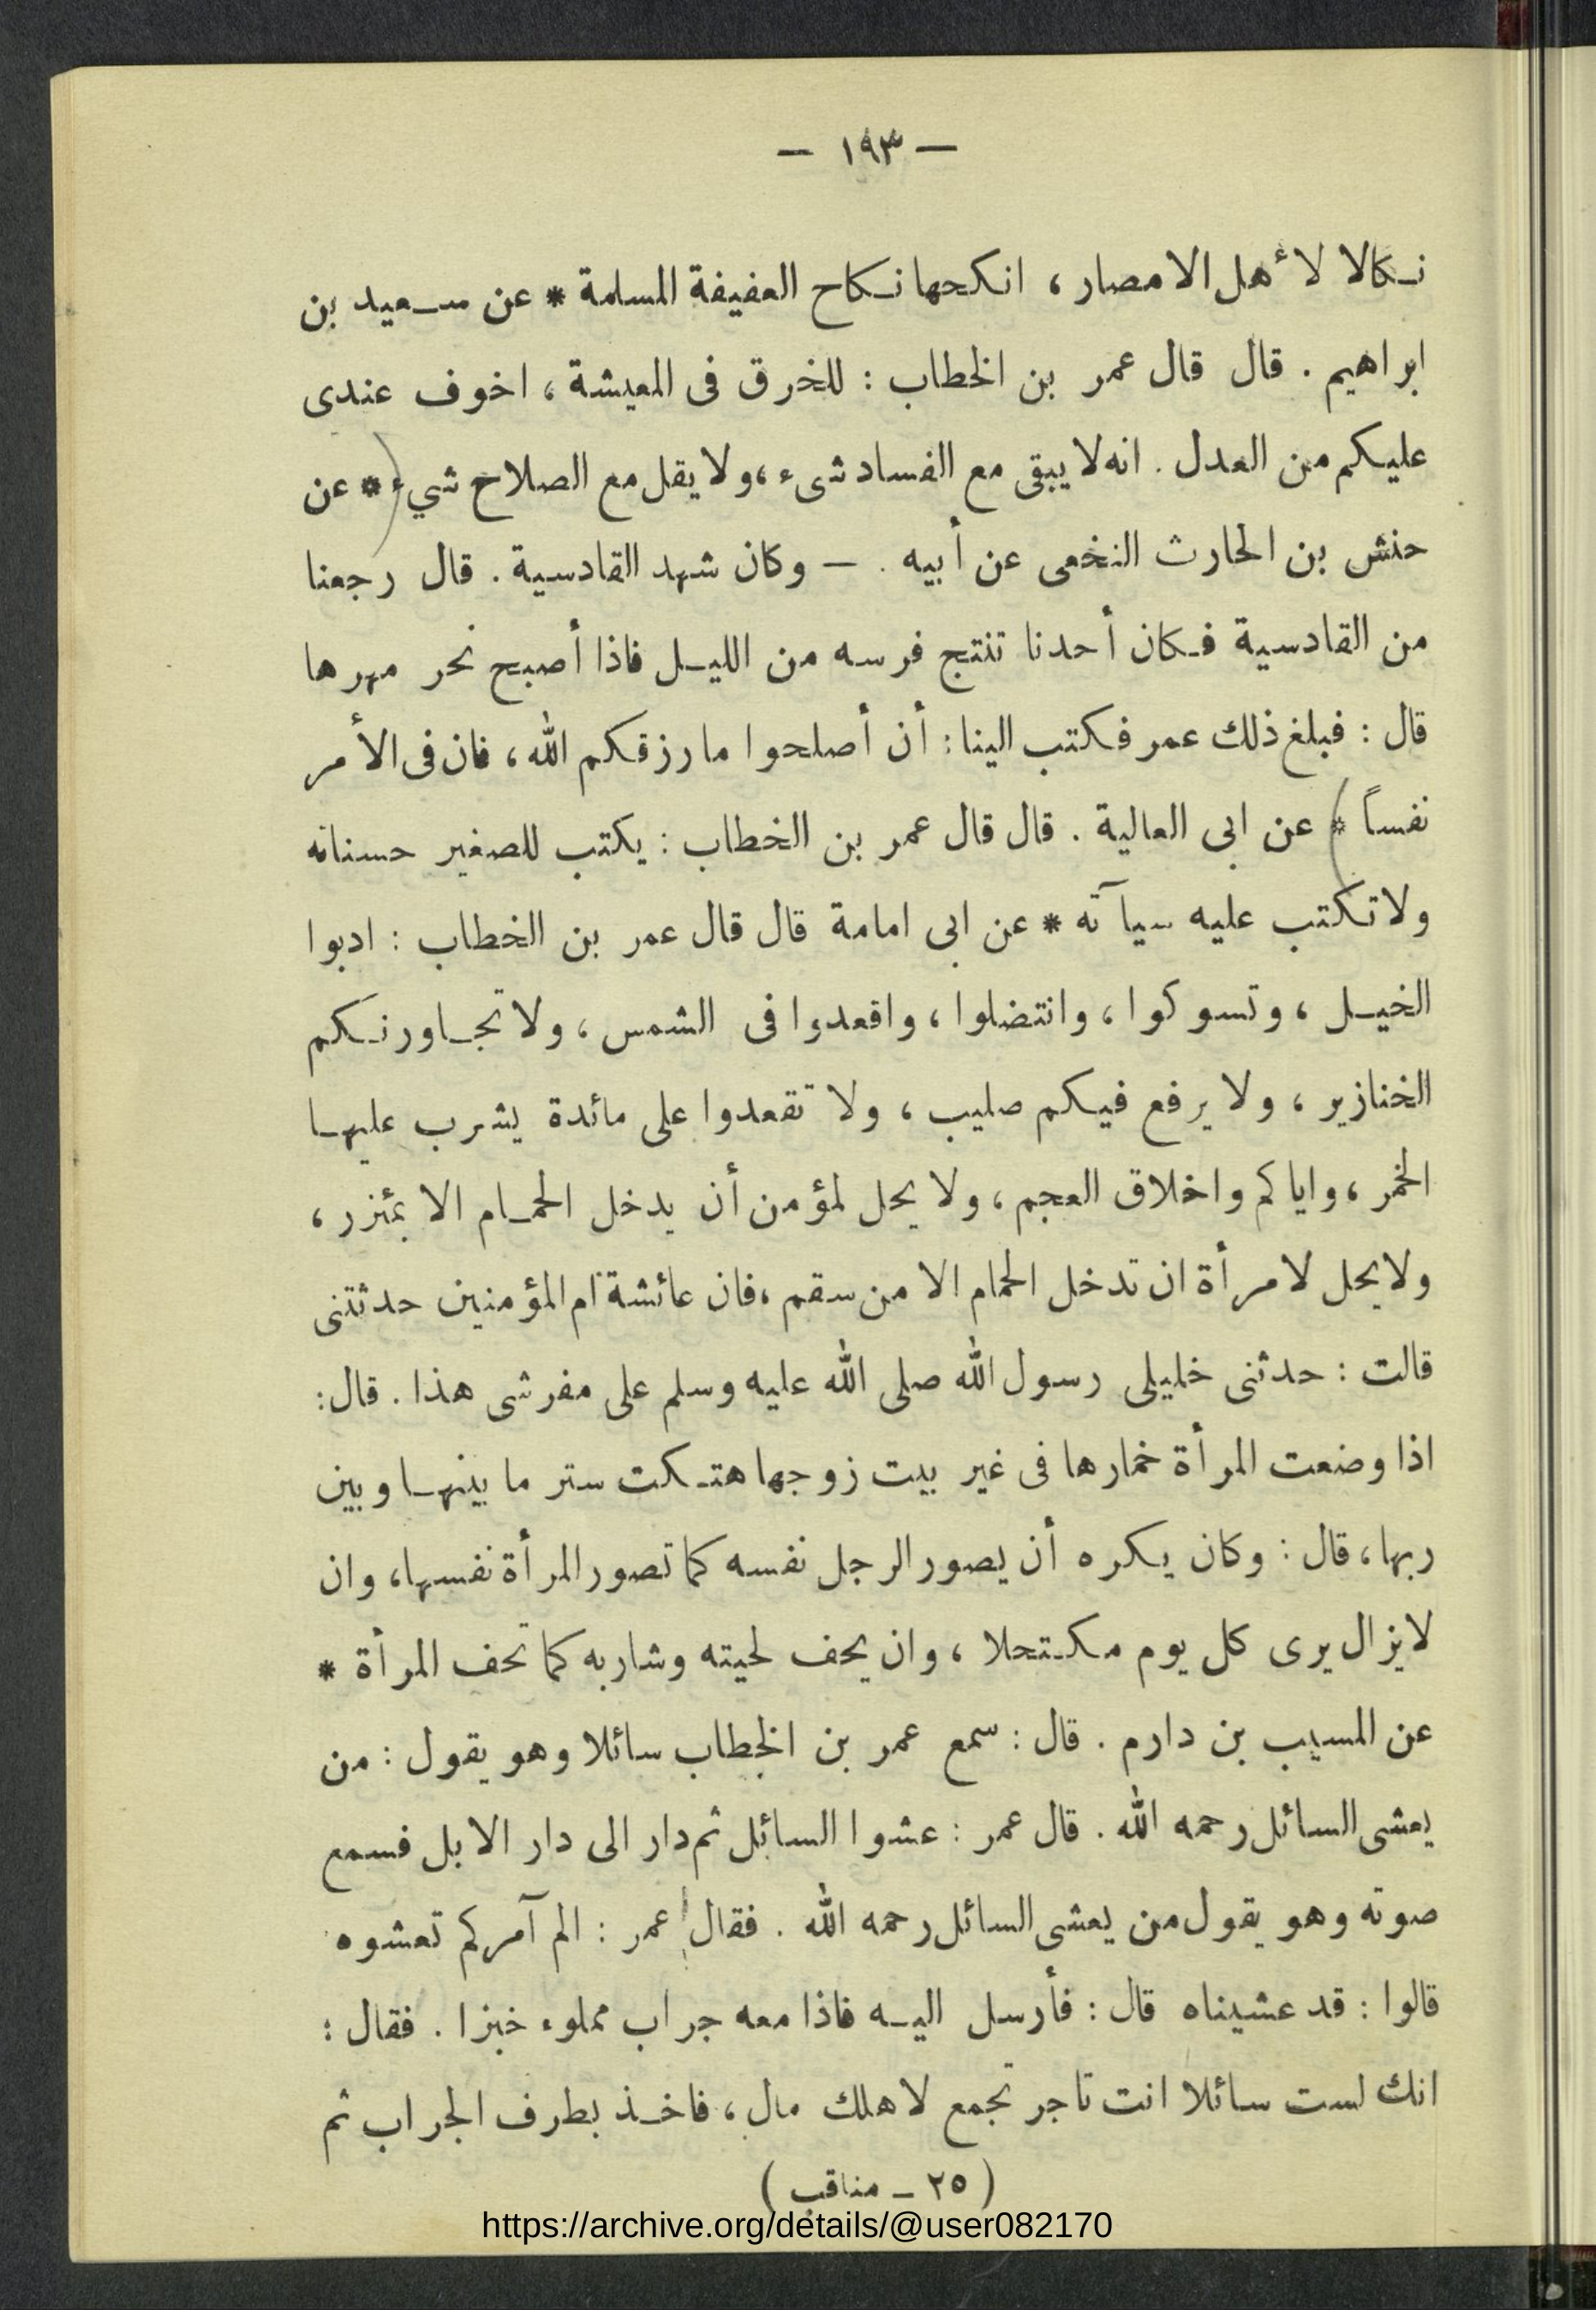 — ١٩٣ —
نكالا لأهل الامصار ، انكحها نكاح العفيفة المسلمة * عن سعيد بن
ابراهيم . قال قال عمر بن الخطاب : للخرق فى المعيشة ، اخوف عندى
عليكم من العدل . انه لا يبقى مع الفساد شىء ، ولا يقل مع الصلاح شيء * عن
حنش بن الحارث النخعى عن أبيه . — وكان شهد القادسية . قال رجعنا
من القادسية فكان أحدنا تنتج فرسه من الليل فاذا أصبح نحر مهرها
قال : فبلغ ذلك عمر فكتب الينا : أن أصلحوا ما رزقكم الله ، فان فى الأمر
نفساً * عن ابى العالية . قال قال عمر بن الخطاب : يكتب للصغير حسناته
ولا تكتب عليه سيآته * عن ابى امامة قال قال عمر بن الخطاب : ادبوا
الخيل ، وتسوكوا ، وانتضلوا ، واقعدوا فى الشمس ، ولا تجاورنكم
الخنازير ، ولا يرفع فيكم صليب ، ولا تقعدوا على مائدة يشرب عليها
الخمر ، واياكم واخلاق العجم ، ولا يحل لمؤمن أن يدخل الحمام الا بمئزر ،
ولا يحل لامرأة ان تدخل الحمام الا من سقم ، فان عائشة أم المؤمنين حدثتنى
قالت : حدثنى خليلى رسول الله صلى الله عليه وسلم على مفرشى هذا . قال :
اذا وضعت المرأة خمارها فى غير بيت زوجها هتكت ستر ما بينها وبين
ربها ، قال : وكان يكره أن يصور الرجل نفسه كما تصور المرأة نفسها ، وان
لا يزال يرى كل يوم مكتحلا ، وان يحف لحيته وشاربه كما تحف المرأة *
عن المسيب بن دارم . قال : سمع عمر بن الخطاب سائلا وهو يقول : من
يعشى السائل رحمه الله . قال عمر : عشوا السائل ثم دار الى دار الابل فسمع
صوته وهو يقول من يعشى السائل رحمه الله . فقال عمر : الم آمركم تعشوه
قالوا : قد عشيناه قال : فأرسل اليه فاذا معه جراب مملوء خبزا . فقال :
انك لست سائلا انت تاجر تجمع لاهلك مال ، فاخذ بطرف الجراب ثم
( ٢٥ — مناقب )
https://archive.org/details/@user082170